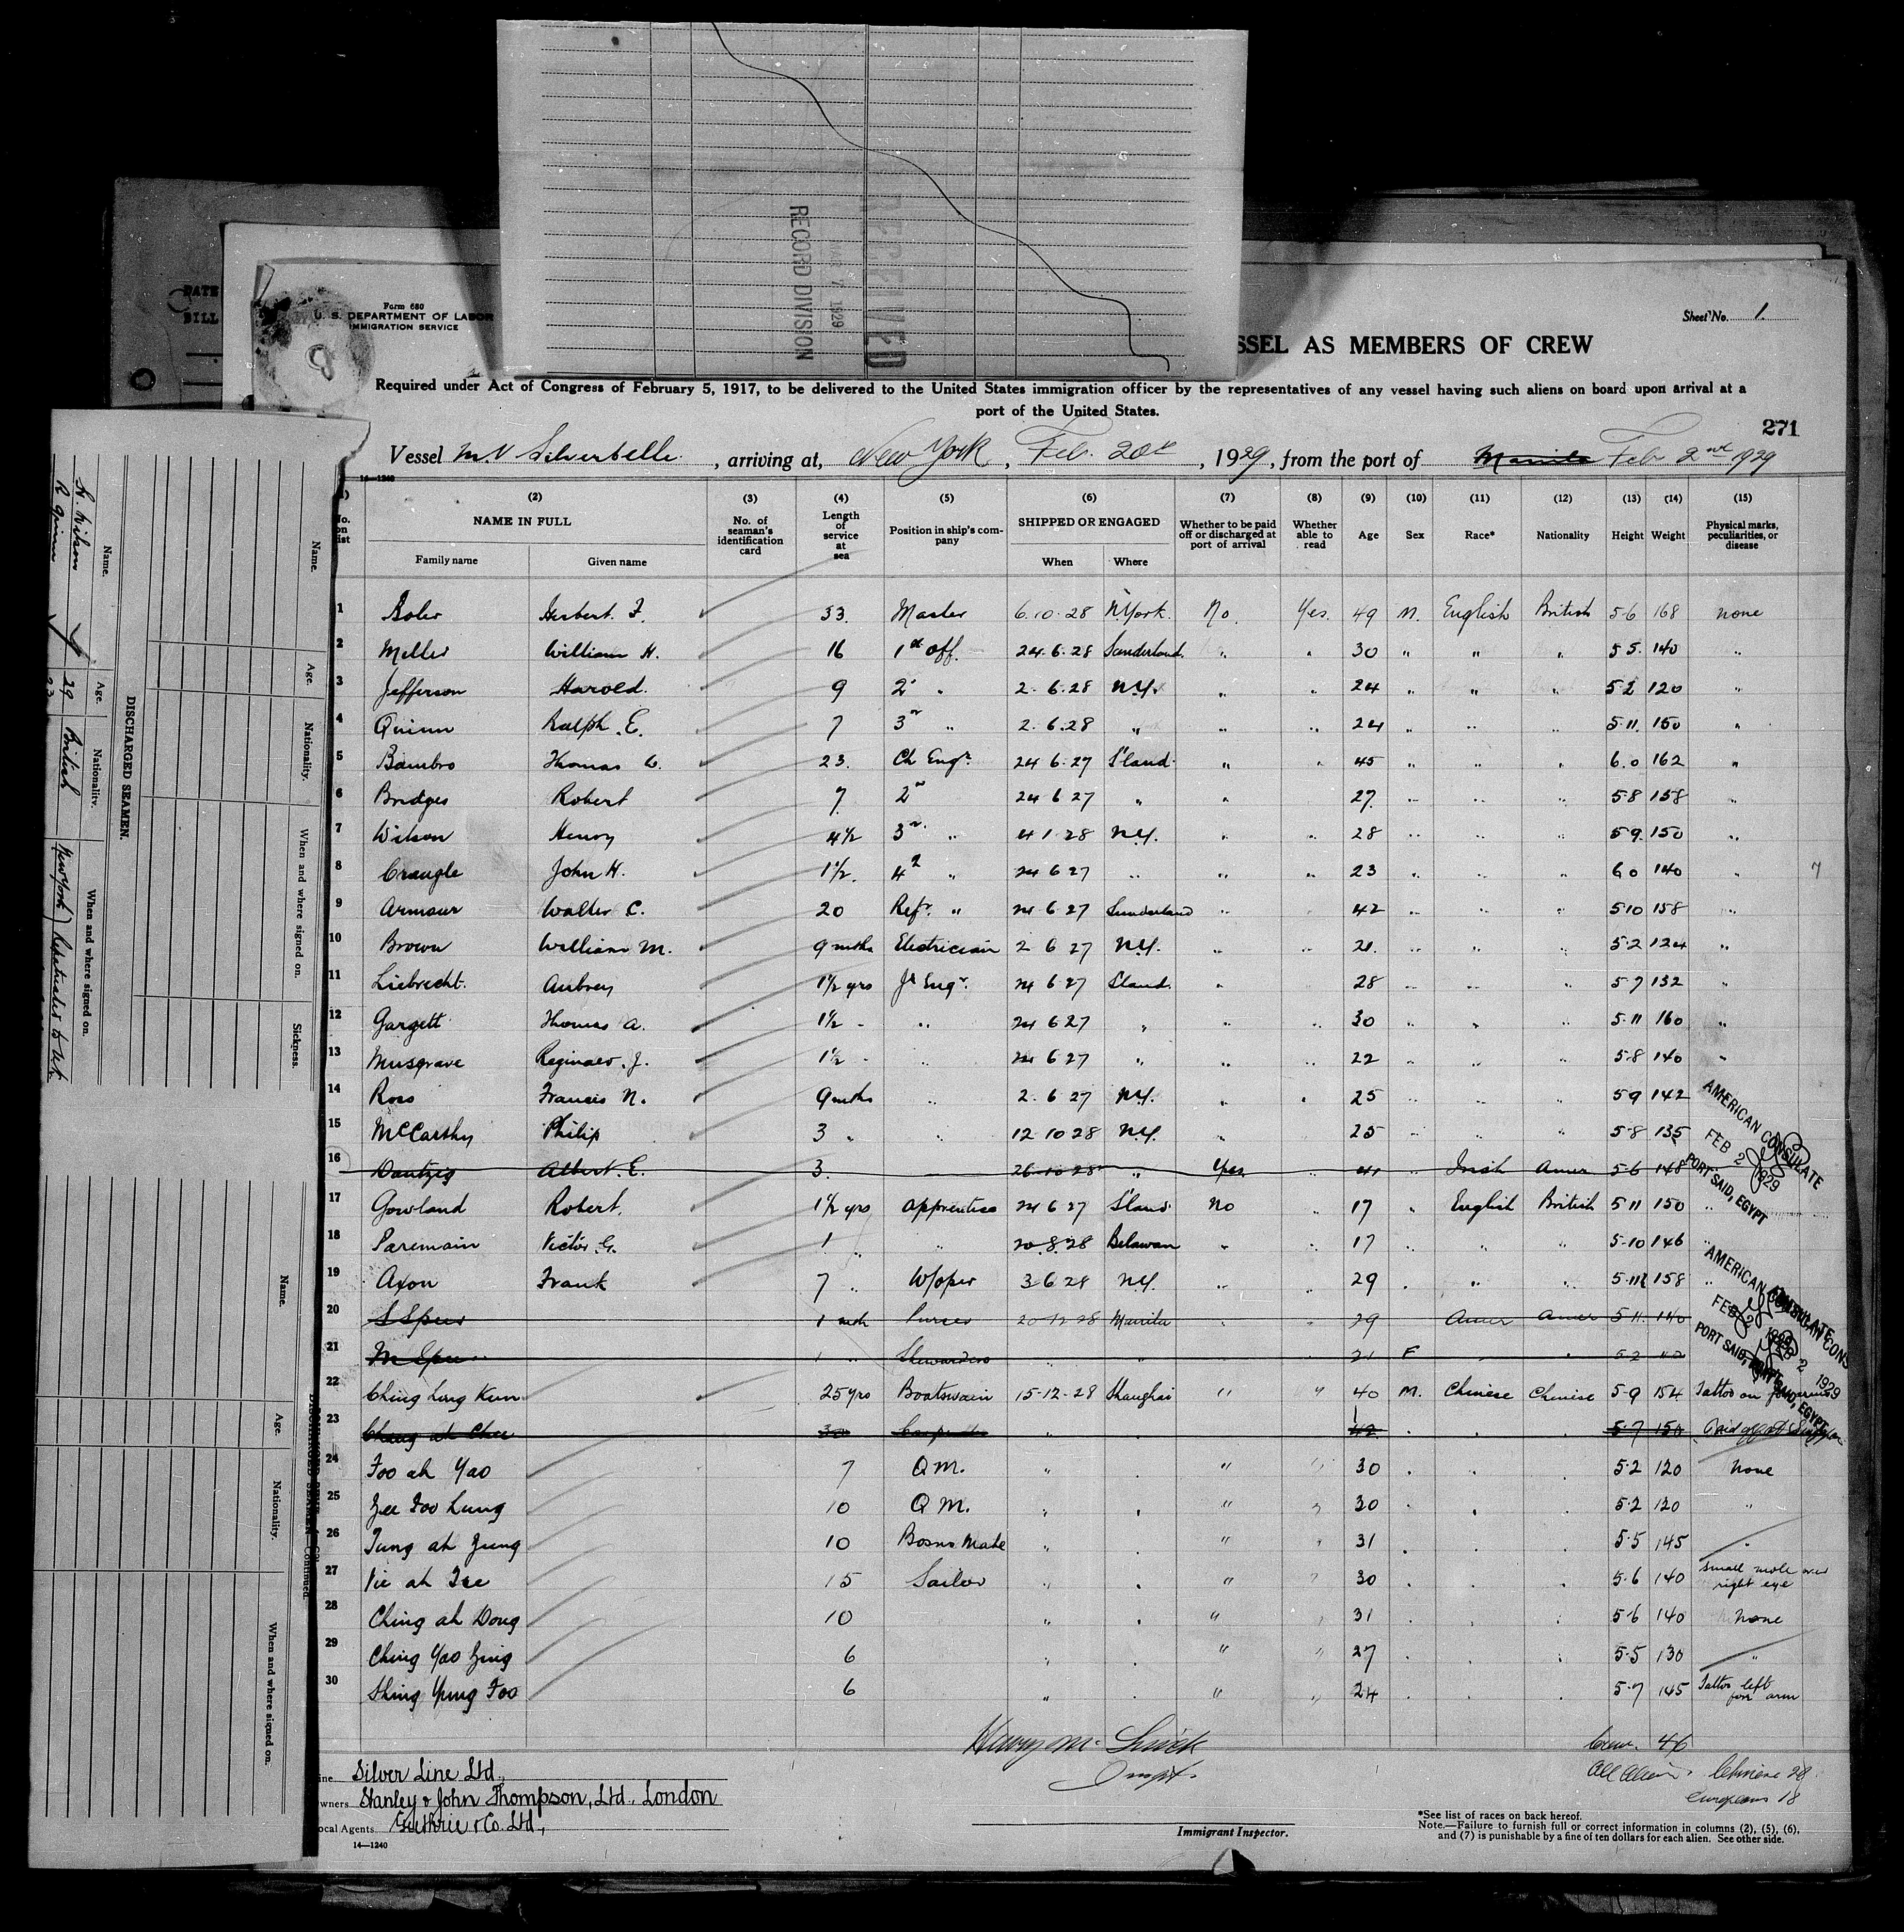 RECEIVED
MAR 7 1929
RECORD DIVISION
DATE
BILL
Form 680
U. S. DEPARTMENT OF LABOR
IMMIGRATION SERVICE
Sheet No. 1.
SSEL AS MEMBERS OF CREW
Required under Act of Congress of February 5, 1917, to be delivered to the United States immigration officer by the representatives of any vessel having such aliens on board upon arrival at a
port of the United States.
271
Vessel M.V Silverbelle, arriving at, New York, Feb. 20th, 1929, from the port of Manila Feb 2nd 1929
14—1240
(2) (3) (4) (5) (6) (7) (8) (9) (10) (11) (12) (13) (14) (15)
No. on list NAME IN FULL Family name Given name No. of seaman's identification card Length of service at sea Position in ship's company SHIPPED OR ENGAGED When Where Whether to be paid off or discharged at port of arrival Whether able to read Age Sex Race* Nationality Height Weight Physical marks, peculiarities, or disease
1 Boler Herbert. F. 33. Master 6.10.28 N.York. No. Yes. 49 M. English British 5-6 168 None
2 Meller William H. 16 1st Off. 24.6.28 Sunderland. " " 30 " " " 5 5. 140 "
3 Jefferson Harold. 9 2" " 2.6.28 N.Y. " " 24 " " " 5-2 120 "
4 Quinn Ralph. E. 7 3" " 2.6.28 " " " 24 " " " 5.11. 150 "
5 Bambro Thomas 23. Ch Engr. 24 6.27 S'land " " 45 " " " 6.0 162 "
6 Bridges Robert 7 2" 24 6 27 " " 27 " " " 5-8 158 "
7 Wilson Henry 4½ 3" " 4 1 28 N.Y. " " 28 " " " 5 9. 150 "
8 Craugle John H. 1½. 4 " 24 6 27 " " " 23 " " " 6 0 140 "
9 Armour Walter C. 20 Refr. " 24 6 27 Sunderland " " 42 " " " 5 10 158 "
10 Brown William M. 9 mths Electrician 2 6 27 N.Y. " " 21. " " " 5-2 124 "
11 Liebrecht. Aubrey 1½ yrs Jr Engr. 24 6 27 S'land. " 28 " " " 5-7 132 "
12 Gargett Thomas A. 1½ " " 24 6 27 " " " 30 " " " 5-11 160 "
13 Musgrave Reginald. J. 1½ " " 24 6 27 " " " 22 " " " 5-8 140 "
14 Ross Francis N. 9 mths " 2. 6 27 N.Y. " " 25 " " " 5 9 142
15 McCarthy Philip 3 " " 12 10 28 N.Y. " 25 " " " 5-8 135
16 Dantzig Albert. E. 3. 26-10-28 " Yes " 41 " Irish Amer 5-6 148
17 Gowland Robert. 1½ yrs Apprentice 24 6 27 S'land No " 17 " English British 5 11 150 "
18 Paremain Victor G. 1 " " 20.8.28 Belawan " " 17 " " " 5-10 146 "
19 Axon Frank 7 " W/oper 3 6 28 N.Y. " " 29 " " " 5.11½ 158 "
20 S Speer 1 mth Purser 20-12-28 Manila " " 29 Amer Amer 5-11. 140
21 1 " Stewardess " " 21 F " " 5-2
22 Ching Long Kun 25 yrs Boatswain 15-12-28 Shanghai " " 40 M. Chinese Chinese 5-9 154 Tattoo on forearms
23 Chang ah Chee 30 Carpenter " " 42 " " " 5-7 150 Paid off at
24 Foo ah Yao 7 Q M. " " " " 30 " " " 5.2 120 None
25 Zee Foo Lung 10 Q M. " " " " 30 " " " 5.2 120 "
26 Tung ah Zung 10 Bosns Mate " " " " 31 " " " 5.5 145 "
27 Vie ah Tee 15 Sailor " " " " 30 " " " 5.6 140 Small mole over right eye
28 Ching ah Dong 10 " " " " 31 " " " 5.6 140 None
29 Ching Yao Zing 6 " " " " 27 " " " 5.5 130 "
30 Shing Yung Foo 6 " " " " 24 " " " 5.7 145 Tattoo left fore arm
AMERICAN CONSULATE
FEB 2 1929
PORT SAID, EGYPT
AMERICAN CONSULATE
FEB 2 1929
PORT SAID, EGYPT
Crew. 46
All Aliens. Chinese 28
Europeans 18
Line Silver Line Ltd.,
Owners Stanley & John Thompson, Ltd., London
Local Agents Guthrie & Co. Ltd.,
14—1240
Immigrant Inspector.
*See list of races on back hereof.
Note.—Failure to furnish full or correct information in columns (2), (5), (6),
and (7) is punishable by a fine of ten dollars for each alien. See other side.
DISCHARGED SEAMEN.
Name. Age. Nationality. When and where signed on. Sickness.
H. Wilson 29 British New York Repatriated to U.K.
R Quinn 23
Name. Age. Nationality. When and where signed on.
DISCHARGED SEAMEN—Continued.
Name. Age. Nationality. When and where signed on.